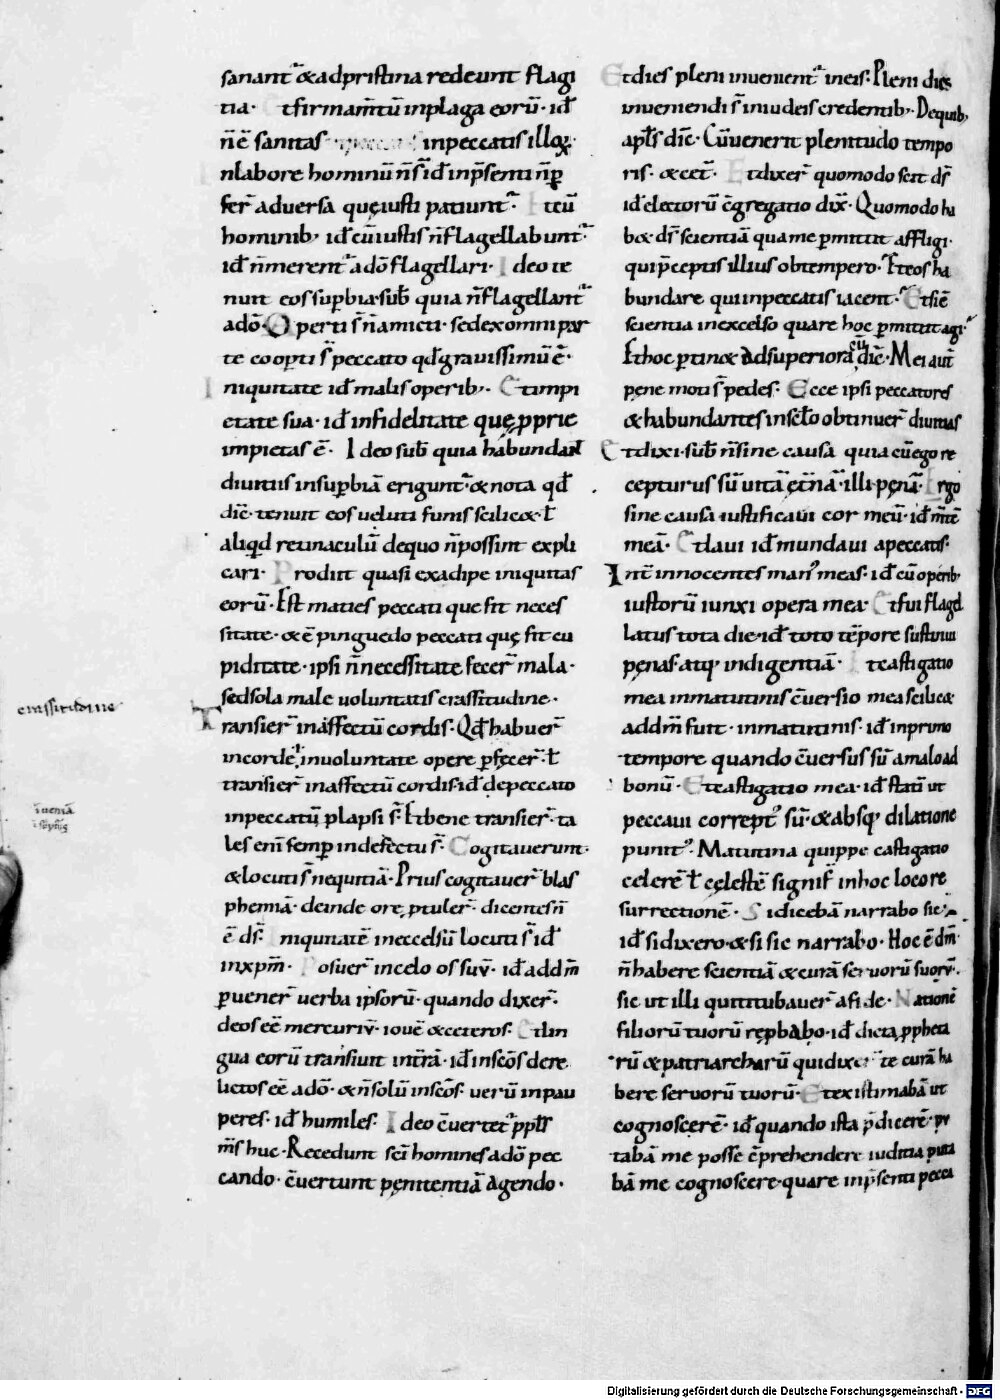 sanant᷑ ⁊ad pristina redeunt flagi
tia· Et firmam̄tū in plaga eorū· id̄
n̄ ē sanitas in peccatis illoꝝ·
In labore hominū n̄ s̄ id̄ in p̄senti n̄ ꝑ
fer᷑ adversa quę iusti patiunt᷑· Et cū
hominib; id̄ cū iustis n̄ flagellabunt᷑·
id̄ n̄ merent᷑ a dō flagellari· Ideo te
nuit eos supbia· sub̄ quia n̄ flagellant᷑
a dō· Operti s̄ n̄ amicti· sed ex omni par
te cooꝑti s̄ peccato qd̄ gravissimū ē·
Iniquitate id̄ malis operib;· Et impi
etate sua· id̄ infidelitate quę ꝓprie
impietas ē· Ideo sub̄ quia habundant
divitiis in supbiā erigunt᷑· ⁊ nota qd̄
dic̄· tenuit eos veluti funis scilic⁊· l̄
aliqd̄ retinaculū de quo n̄ possint expli
cari· Prodiit quasi ex adipe iniquitas
eorū· Est maties peccati que fit neces
sitate· ⁊ ē pinguedo peccati quę fit cu
piditate· ipsi n̄ necessitate fecer᷑ mala·
sed sola male voluntatis crassitudine·
crassitudine
Transier᷑ in affectū cordis· Qd̄ habuer᷑
in corde in voluntate opere ꝑfecer᷑· l̄
transier᷑ in affectū cordis· id̄ de peccato
in peccatū ꝓlapsi s̄· Et bene transier᷑· ta
les enī semꝑ in defectu s̄· Cogitaverunt·
⁊ locuti s̄ nequitiā· Prius cogitaver᷑ blas
phemiā· deinde ore ꝓtuler᷑· dicentes n̄
ē ds̄· Iniquitatē in excelsū locuti s̄ id̄
in xpm̄· Posuer᷑ in celo os suū· id̄ ad dm̄
ꝑvener᷑ verba ipsorū· quando dixer᷑·
deos eē mercuriū· iovē ⁊ ceteros· Et lin
gua eorū transivit in t̄ra· id̄ in sc̄os dere
lictos eē a dō· ⁊ n̄ solū in sc̄os· verū in pau
peres· id̄ humiles· Ideo c̄vertet᷑ ppl̄s
m̄s huc· Recedunt sc̄i homines a dō pec
cando· c̄vertunt penitentiā agendo·
Et dies pleni invenient᷑ in eis· Pleni dies
inveniendi s̄ in iudeis credentib;· De quib;
apl̄s dic̄· Cū venerit plenitudo tempo
ris· ⁊ cet̄· Et dixer᷑ quomodo scit ds̄
id̄ electorū c̄gregatio dix̄· Quomodo ha
b⁊ ds̄ scientiā qua me ꝑmittit affligi·
qui p̄ceptis illius obtempero· Et eos ha
bundare qui in peccatis iacent· Et si ē
scientia in excelso quare hoc ꝑmittit agi·
Et hoc ꝑtin⁊ ad superiora cū dic̄· Mei aut̄
pene moti s̄ pedes· Ecce ipsi peccatores
⁊ habundantes in sc̄lo obtinuer᷑ divitias
Et dixi· sub̄ n̄ sine causa quia cū ego re
cepturus sū vitā et̄nā· illi penā· Ergo
sine causa iustificavi cor meū· id̄ m̄tē
meā· Et lavi id̄ mundavi a peccatis·
Int̄ innocentes man᷒ meas· id̄ cū operib;
iustorū iunxi opera mea· Et fui flagel
latus tota die· id̄ toto tēpore sustinui
penas atq; indigentiā· Et castigatio
mea in matutinis c̄versio mea scilic⁊
ad dm̄ fuit· in matutinis· id̄ in primo
tempore quando c̄versus sū a malo ad
bonū· Et castigatio mea· id̄ statī ut
peccavi corrept᷒ sū· ⁊ absq; dilatione
punit᷒· Matutina quippe castigatio
celerē l̄ celestē signif̄ in hoc loco re
surrectionē· Si dicebā narrabo sic·
id̄ si dixero· ⁊ si sic narrabo· Hoc ē dm̄
n̄ habere scientiā ⁊ curā servorū suorū·
sic ut illi qui titubaver᷑ a fide· Nationē
filiorū tuorū rep̄babo· id̄ dicta ꝓpheta
rū ⁊ patriarcharū qui dixer᷑ te curā ha
bere servorū tuorū· Et existimabā ut
cognoscerē· id̄ quando ista p̄dicerē· pu
tabā me posse c̄prehendere iuditia puta
bā me cognoscere· quare in p̄senti pecca
Digitalisierung gefördert durch die Deutsche Forschungsgemeinschaft - DFG